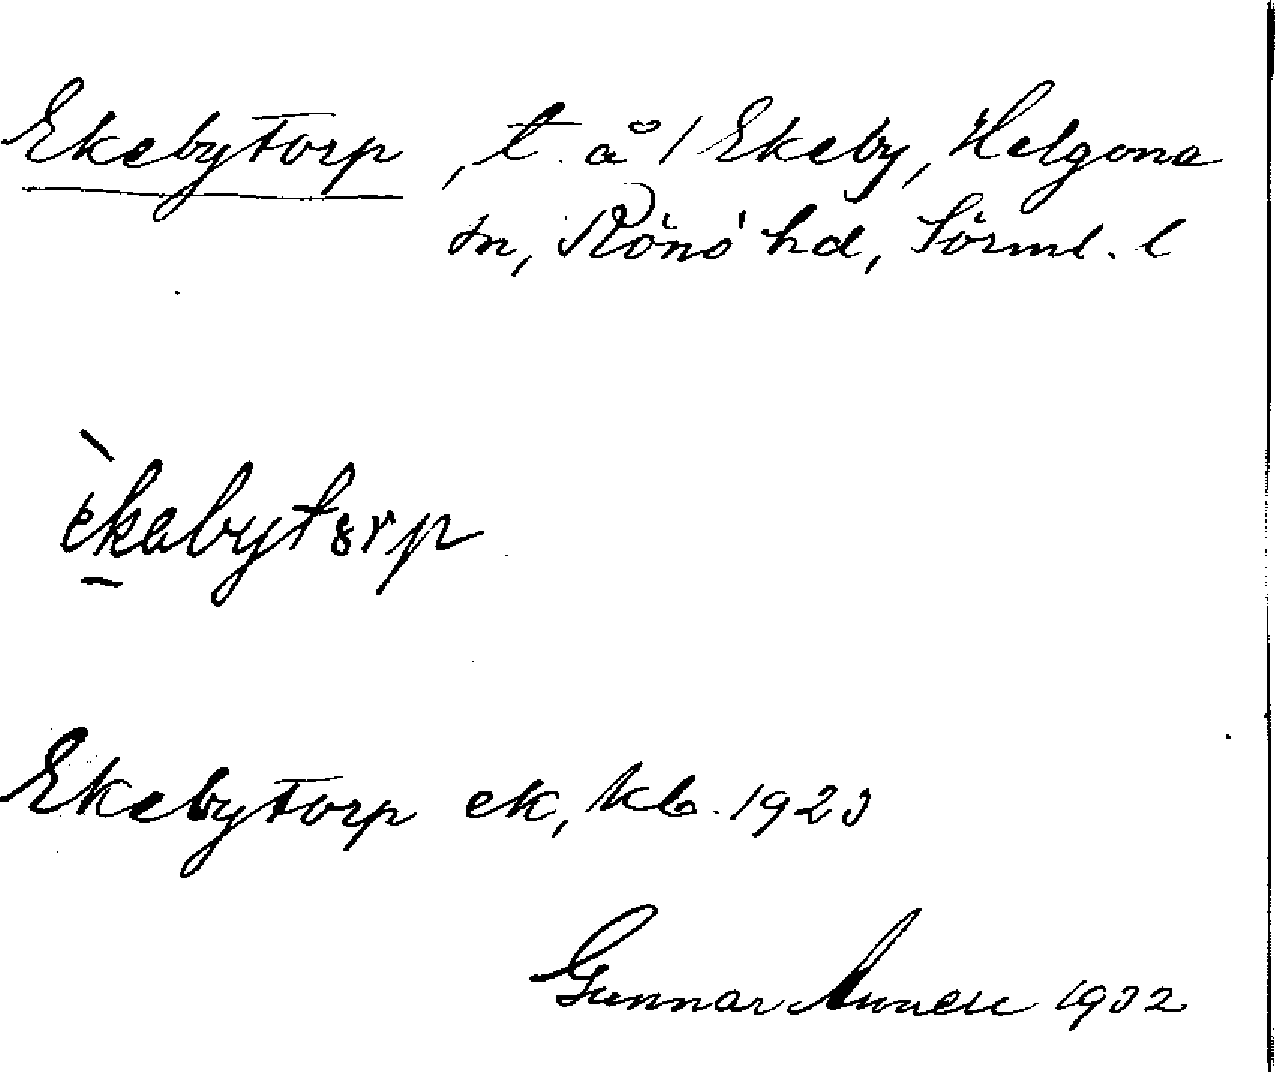 Ekebytorp, t. å 1 Ekeby, Helgona
sn, Rönö hd, Sörml. l
èkabytorp
Ekebytorp ek, kb. 1923
Gunnar 1932